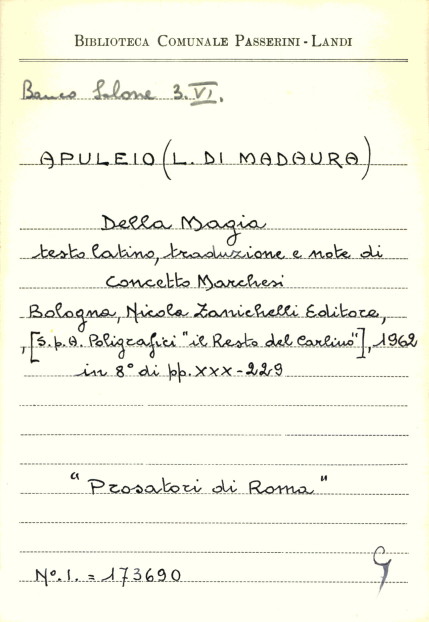 BIBLIOTECA COMUNALE PASSERINI - LANDI
Banco Salone 3. VI.
APULEIO (L. DI MADAURA)
Della Magia
testo latino, traduzione e note di
Concetto Marchesi
Bologna, Nicola Zanichelli Editore,
, [S.p.A. Poligrafici "il Resto del Carlino"], 1962
in 8° di pp. XXX-229
"Prosatori di Roma"
N°. I. = 173690
G